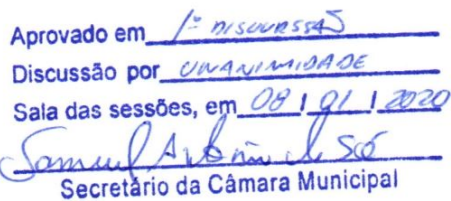 Aprovado em 1ª DISCURSSÃO
Discussão por UNANIMIDADE
Sala das sessões, em 08 / 01 / 2020
Samuel Antônio de Sá
Secretário da Câmara Municipal